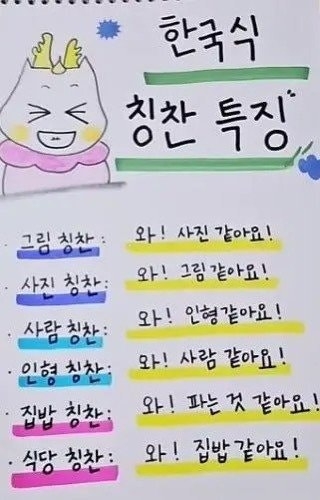 한국식
칭찬 특징
· 그림 칭찬 : 와! 사진 같아요!
· 사진 칭찬 : 와! 그림 같아요!
· 사람 칭찬 : 와! 인형 같아요!
· 인형 칭찬 : 와! 사람 같아요!
· 집밥 칭찬 : 와! 파는 것 같아요!
· 식당 칭찬 : 와! 집밥 같아요!